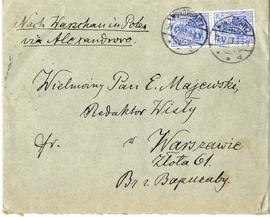 Nach Warschau in Polen
via Alexandrowo.
Wielmożny Pan E. Majewski,
Redaktor Wisły
w Warszawie
Złota 61.
Вг г. Варшаву